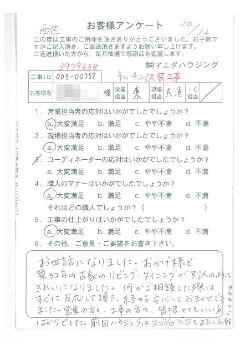 西区
お客様アンケート
10/12
この度は工事のご用命を頂きありがとうございました。お手数で
すがご記入頂き、ご返送頂きますようお願い申し上げます。
ご返送頂いた方から、毎月抽選で感謝品を進呈します。
㈱マエダハウジング
工事ID 003-00255
キッチン改装工事
お客様名 様 営業担当 東 現場担当 大濱 IC担当
1. 営業担当者の応対はいかがでしたでしょうか?
a. 大変満足 b. 満足 c. やや不満 d. 不満
2. 現場担当者の応対はいかがでしたでしょうか?
a. 大変満足 b. 満足 c. やや不満 d. 不満
3. コーディネーターの応対はいかがでしたでしょうか?
a. 大変満足 b. 満足 c. やや不満 d. 不満
4. 職人のマナーはいかがでしたでしょうか?
a. 大変満足 b. 満足 c. やや不満 d. 不満
それはどの職人でしょうか? ( )
5. 工事の仕上がりはいかがでしたでしょうか?
a. 大変満足 b. 満足 c. やや不満 d. 不満
6. その他、ご意見・ご要望をお書き下さい。
お世話になりました。おかげ様で
築32年の古家のリビング・ダイニングが別人のように
きれいになりました。何かご相談した際は
すぐに反応して頂き、終始安心しておまかせでき
ました。営業の方、工事の方々、皆様とてもいい方
ばかりでした。前田ハウジングは